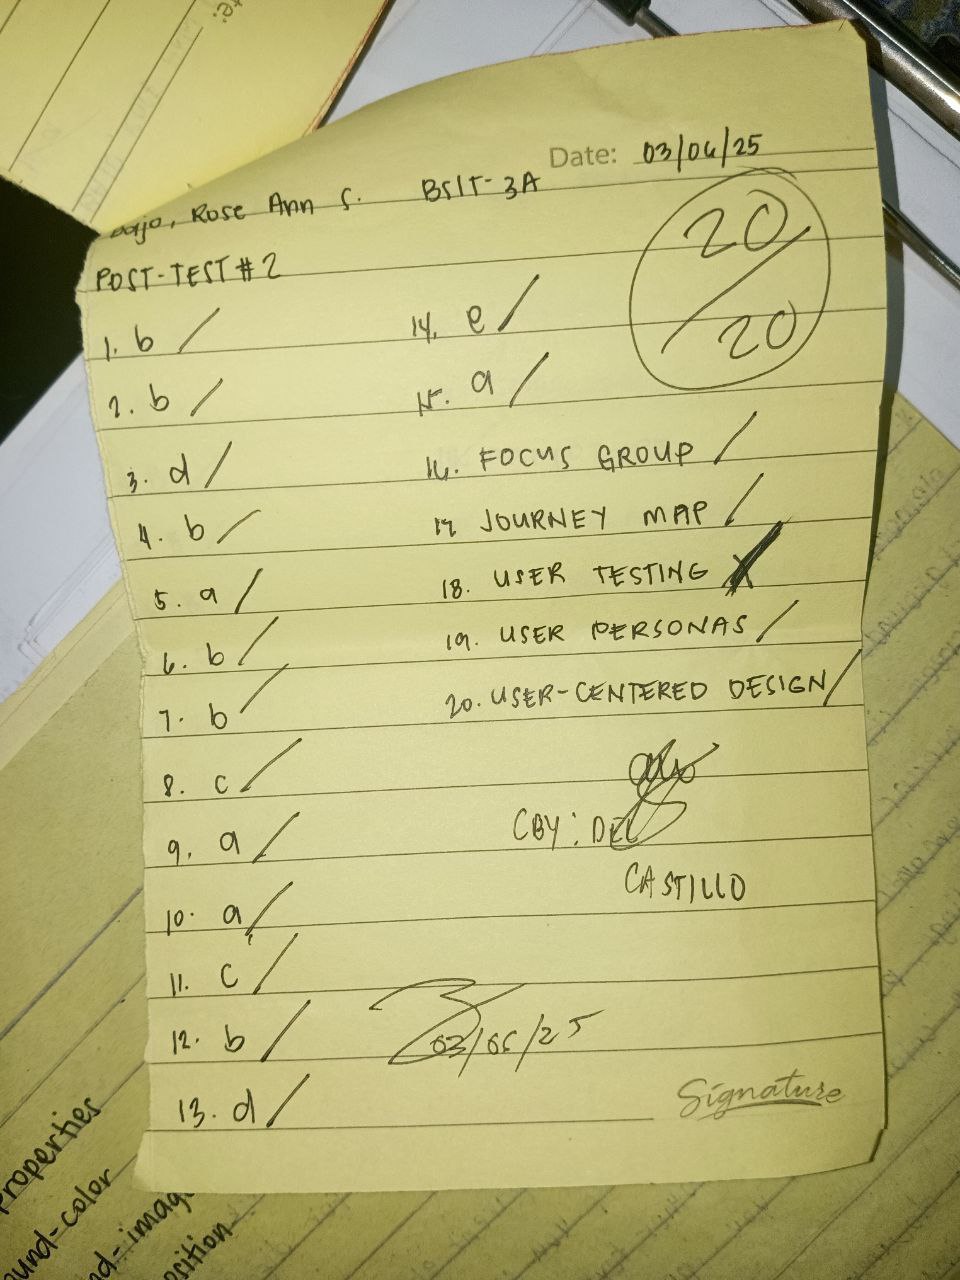 Date: 03/06/25
Rose Ann S. BSIT-3A
POST-TEST #2
20/20
1. b /
2. b /
3. d /
4. b /
5. a /
6. b /
7. b /
8. c /
9. a /
10. a /
11. c /
12. b /
13. d /
14. e /
15. a /
16. FOCUS GROUP /
17 JOURNEY MAP /
18. USER TESTING
19. USER PERSONAS /
20. USER-CENTERED DESIGN /
CBY: DEL
CASTILLO
03/05/25
Signature
roperties
ound-color
nd-imag
sition